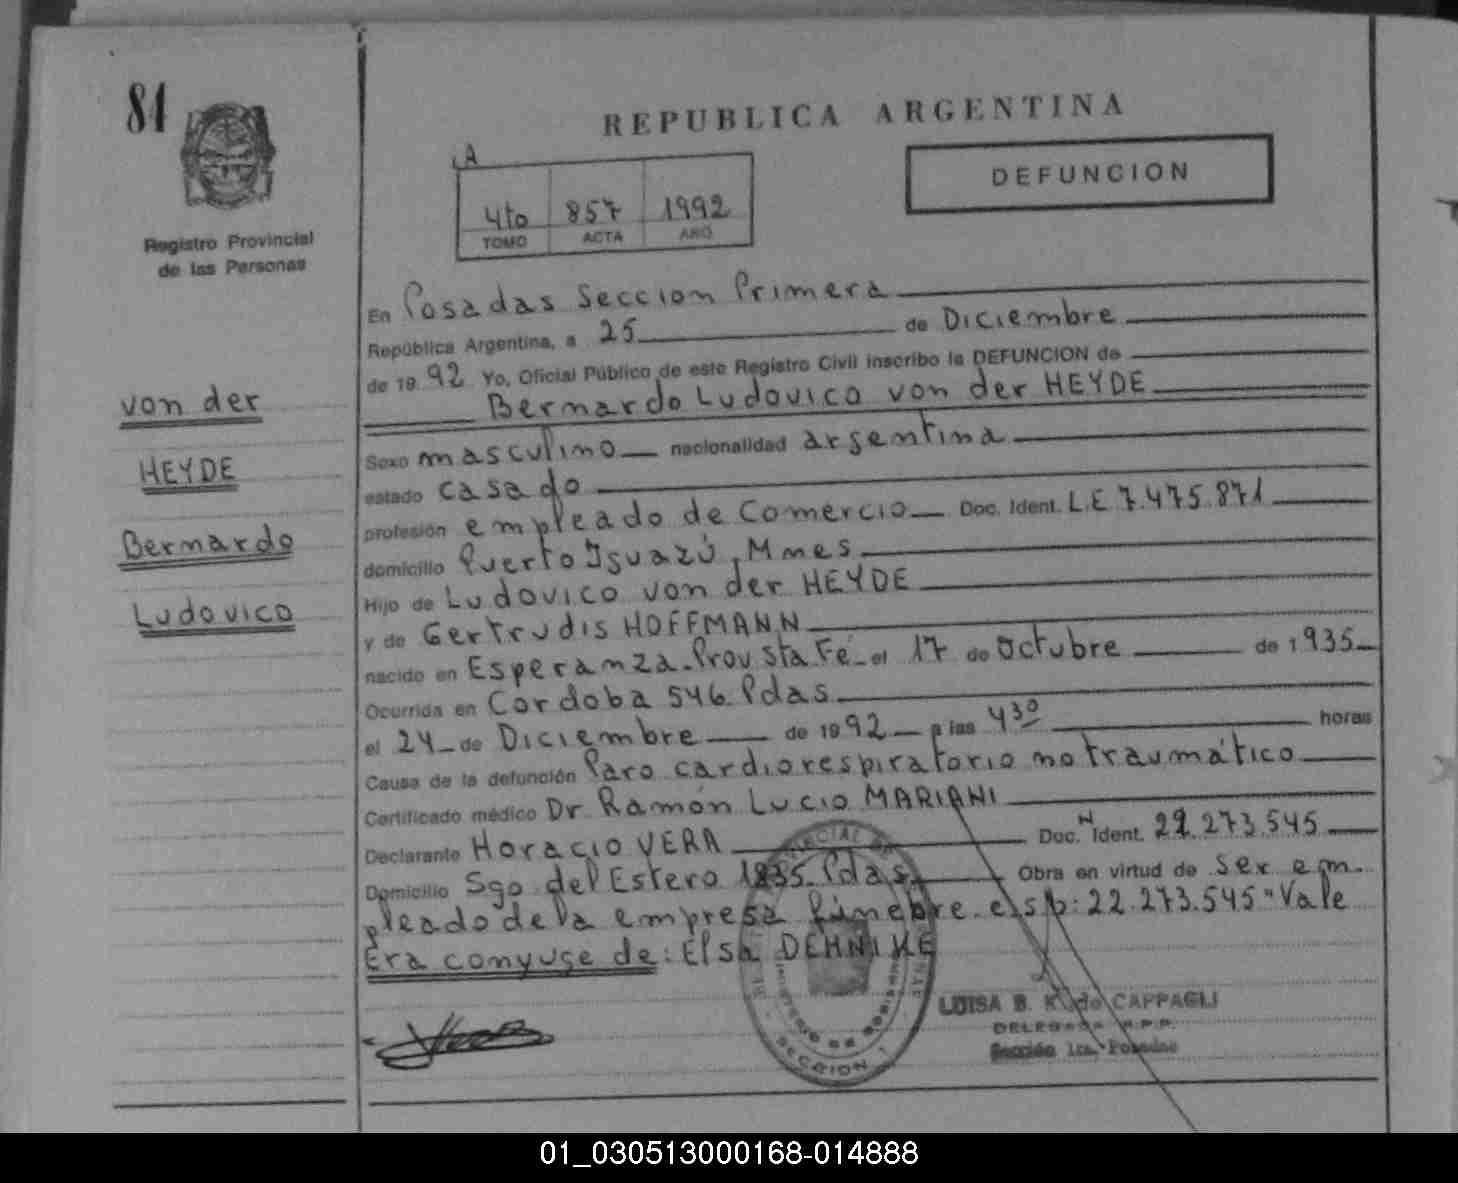 84
Registro Provincial
de las Personas
von der
HEYDE
Bernardo
Ludovico
REPUBLICA ARGENTINA
DEFUNCION
A
4to 857 1992
TOMO ACTA AÑO
En Posadas Seccion Primera
República Argentina, a 25 de Diciembre
de 19 92 Yo, Oficial Público de este Registro Civil inscribo la DEFUNCION de
Bernardo Ludovico von der HEYDE
Sexo masculino nacionalidad argentina
estado casado
profesión empleado de Comercio Doc. Ident. L.E 7.475.871
domicilio Puerto Iguazú, Mnes
Hijo de Ludovico von der HEYDE
y de Gertrudis HOFFMANN
nacido en Esperanza-Prov Sta Fé- el 17 de Octubre de 1935
Ocurrida en Cordoba 546 Pdas
el 24 de Diciembre de 19 92 a las 4 30 horas
Causa de la defunción Paro cardiorespiratorio no traumático
Certificado médico Dr Ramón Lucio MARIANI
Declarante Horacio VERA Doc. N Ident. 22.273.545
Domicilio Sgo del Estero 1835 Pdas Obra en virtud de ser em-
pleado de la empresa fúnebre. e/s/p: 22.273.545 "Vale
Era conyuge de: Elsa DEHNIKE
LUISA B. K. de CAPPAGLI
DELEGADA R.P.P.
Sección 1ra. Posadas
SECCION 1
01_030513000168-014888